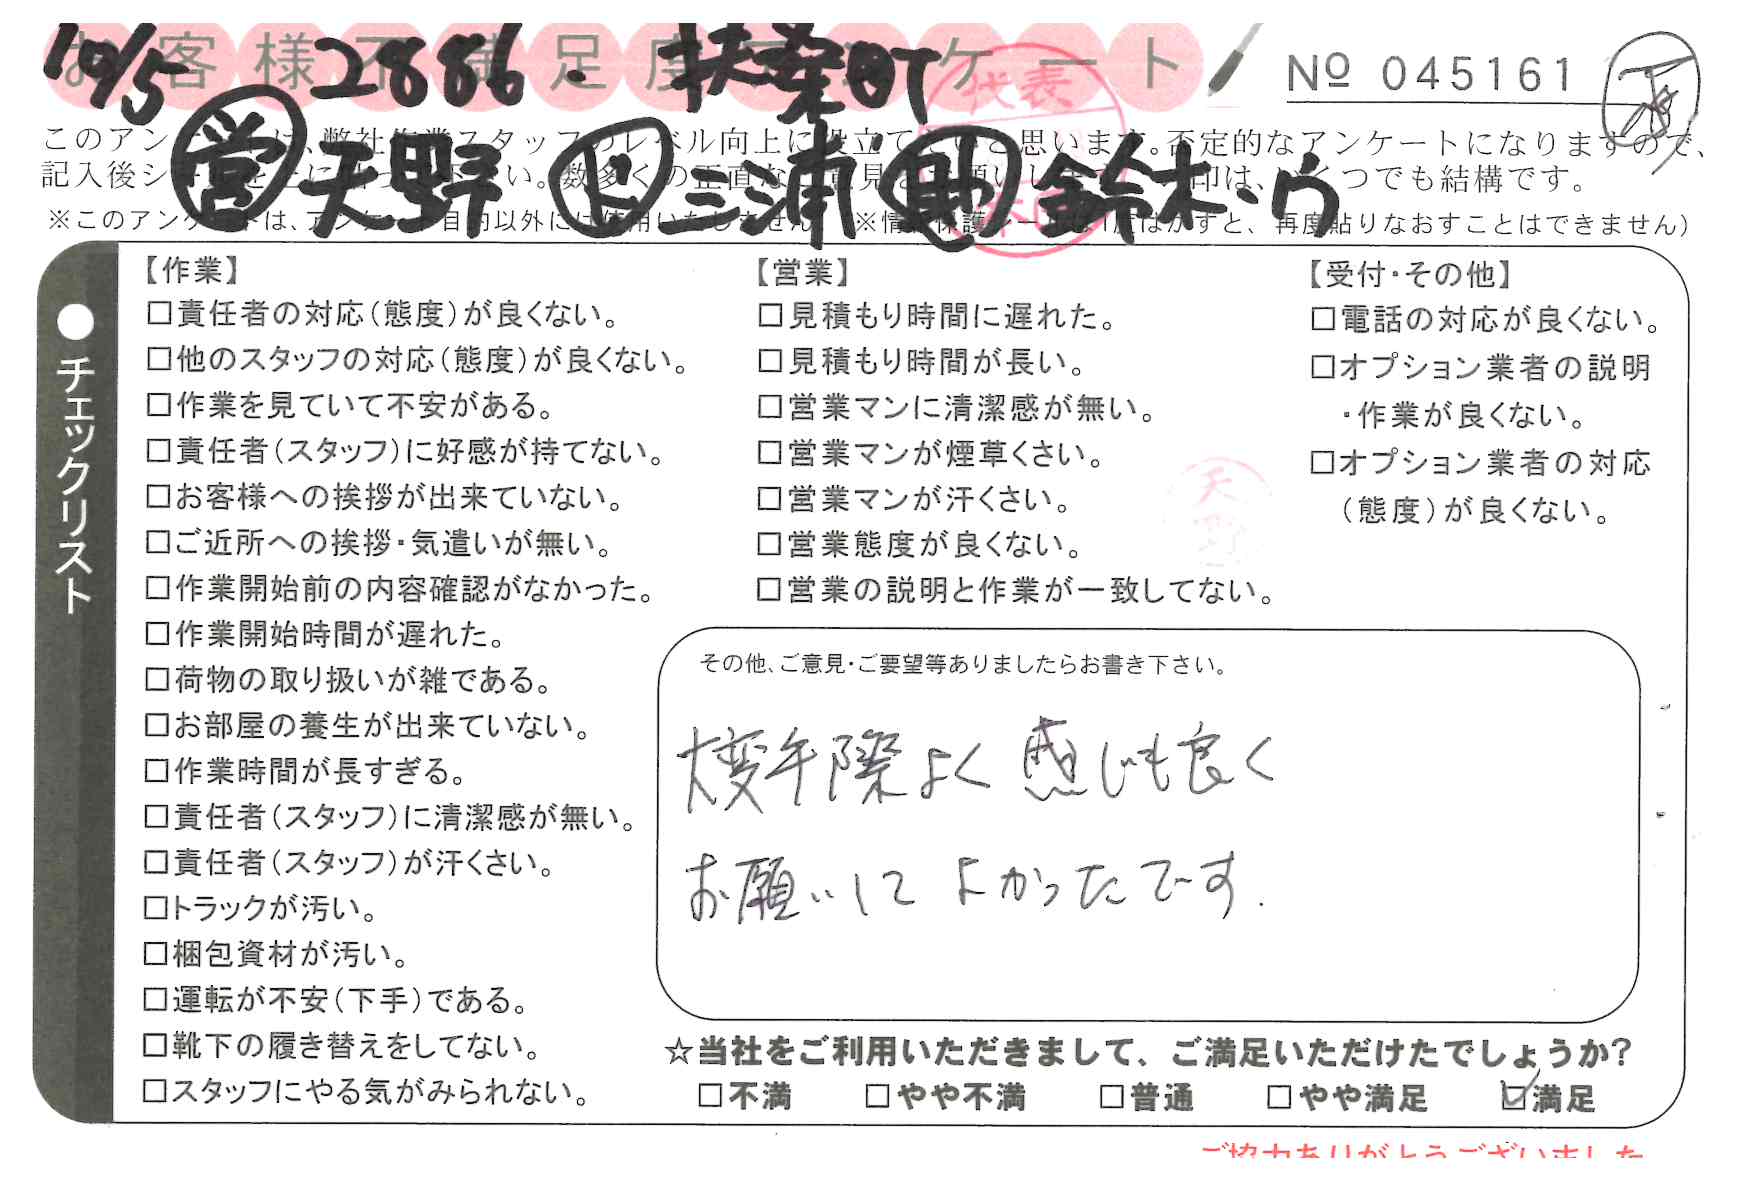 10/5 2886. 扶桑町
お客様不満足度アンケート
No 045161
このアンケートは、弊社作業スタッフのレベル向上に役立てたいと思います。否定的なアンケートになりますので、
記入後シールを上に貼って下さい。数多くの正直なご意見をお願いします。 印は、いくつでも結構です。
営 天野 ド 三浦 助 鈴木、ウ
代表
※このアンケートは、アンケート目的以外には使用いたしません。(※情報保護シールは1度はがすと、再度貼りなおすことはできません)
●チェックリスト
【作業】
□責任者の対応(態度)が良くない。
□他のスタッフの対応(態度)が良くない。
□作業を見ていて不安がある。
□責任者(スタッフ)に好感が持てない。
□お客様への挨拶が出来ていない。
□ご近所への挨拶・気遣いが無い。
□作業開始前の内容確認がなかった。
□作業開始時間が遅れた。
□荷物の取り扱いが雑である。
□お部屋の養生が出来ていない。
□作業時間が長すぎる。
□責任者(スタッフ)に清潔感が無い。
□責任者(スタッフ)が汗くさい。
□トラックが汚い。
□梱包資材が汚い。
□運転が不安(下手)である。
□靴下の履き替えをしてない。
□スタッフにやる気がみられない。
【営業】
□見積もり時間に遅れた。
□見積もり時間が長い。
□営業マンに清潔感が無い。
□営業マンが煙草くさい。
□営業マンが汗くさい。
□営業態度が良くない。
□営業の説明と作業が一致してない。
天野
【受付・その他】
□電話の対応が良くない。
□オプション業者の説明
・作業が良くない。
□オプション業者の対応
(態度)が良くない。
その他、ご意見・ご要望等ありましたらお書き下さい。
大変手際よく感じも良く
お願いしてよかったです.
☆当社をご利用いただきまして、ご満足いただけたでしょうか?
□不満 □やや不満 □普通 □やや満足 ☑満足
ご協力ありがとうございました